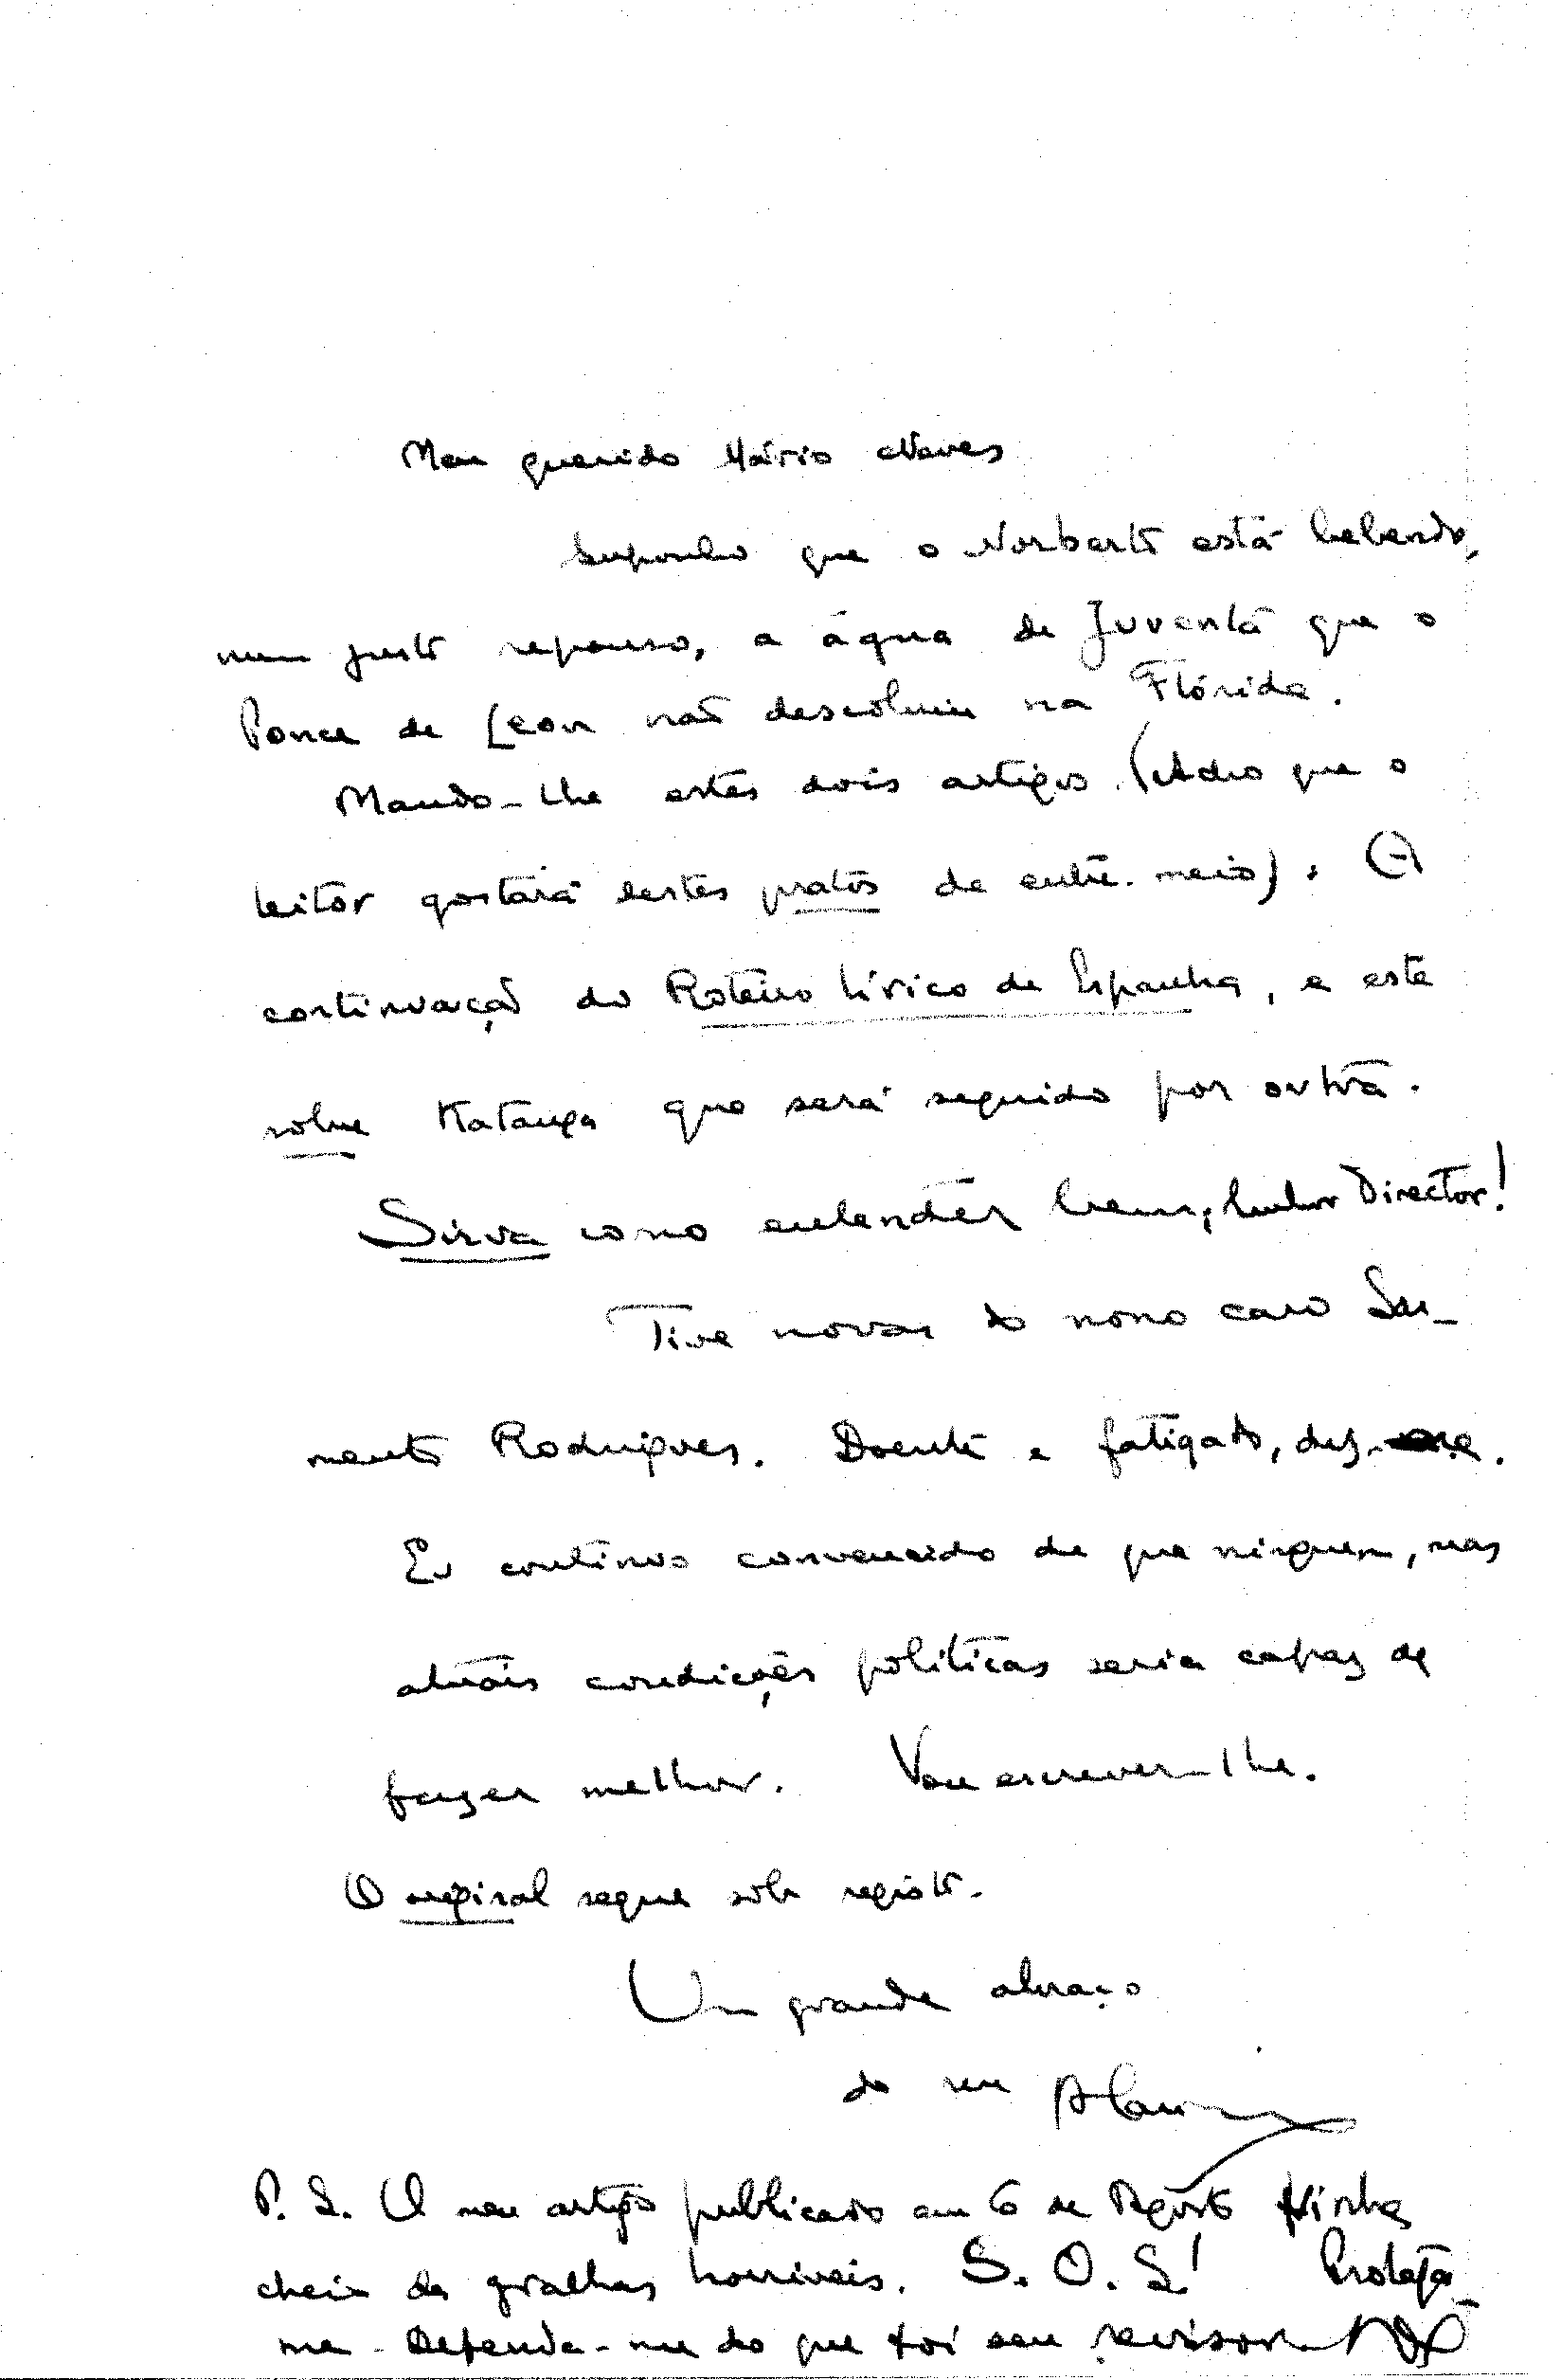 Meu querido Mário Neves
Suponho que o Norberto está bebendo,
num justo repouso, a água de Juventa que o
Ponce de Leon não descobriu na Flórida.
Mando-lhe estes dois artigos. (Acho que o
leitor gostará destes pratos de entre-meio). A
continuação do Roteiro Lírico de Espanha, e este
sobre Katanga que será seguido por outro.
Sirva como entender bem, Senhor Director!
Tive novas do nosso caro Sar-
mento Rodrigues. Doente e fatigado,
Eu continuo convencido de que ninguem, nas
atuais condições politicas seria capaz de
fazer melhor. Vou escrever-lhe.
O original segue sob registo.
Um grande abraço
do seu
P. S. O meu artigo publicado em 6 de Agosto vinha
cheio de gralhas horriveis. S. O. S! Proteja-
me - Defenda-me do que foi seu revisor